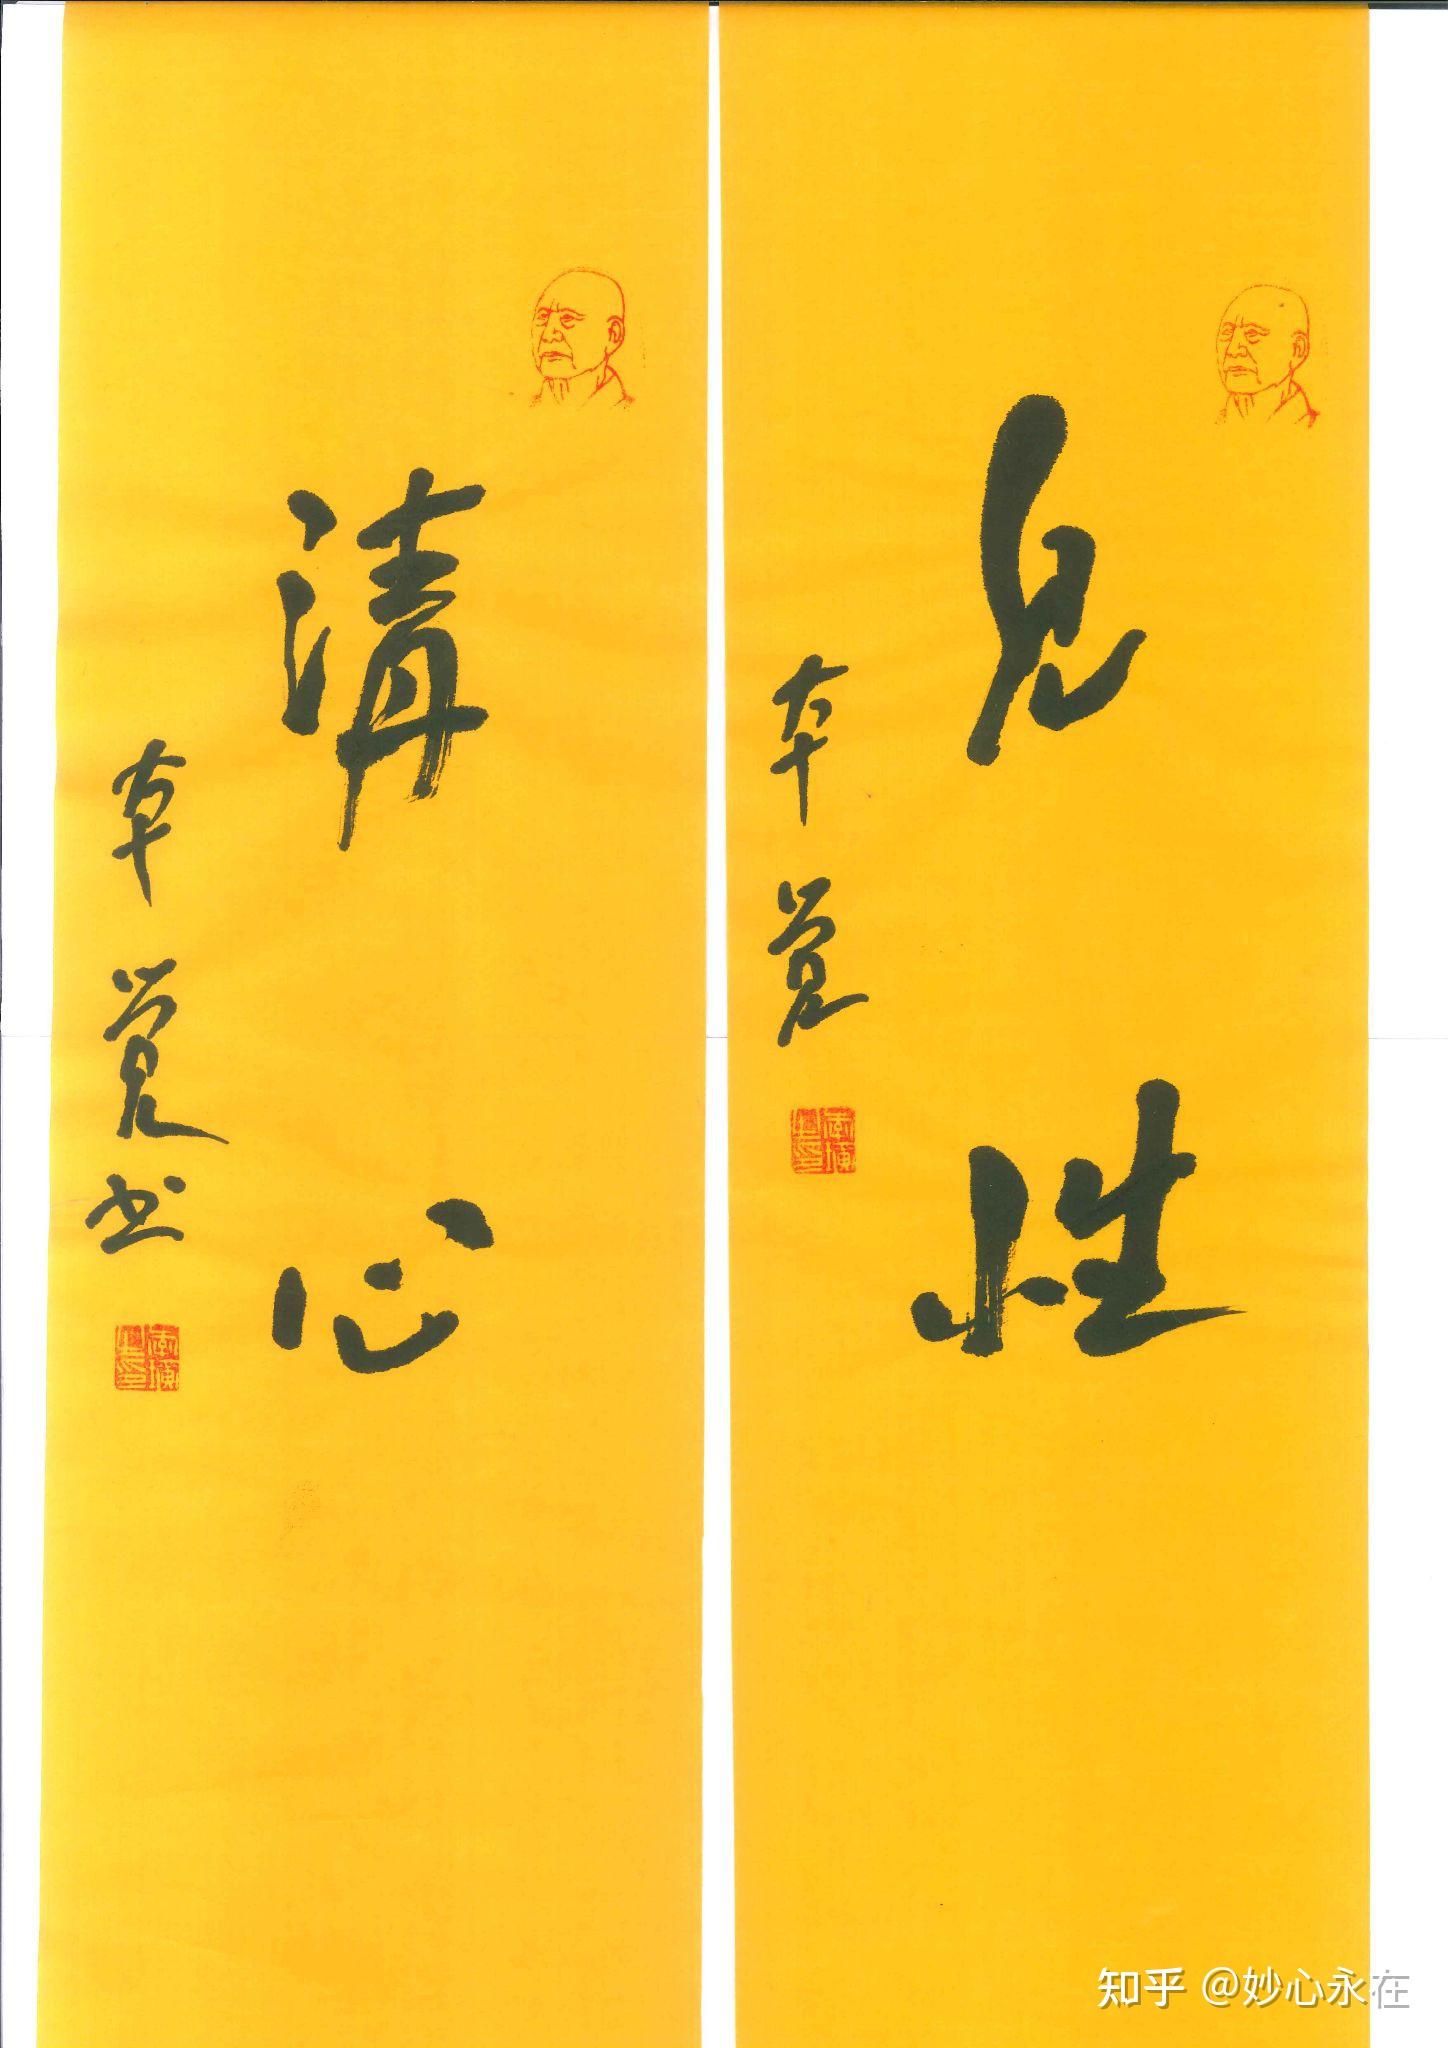 见性
本觉
清心
本觉书
知乎 @妙心永在